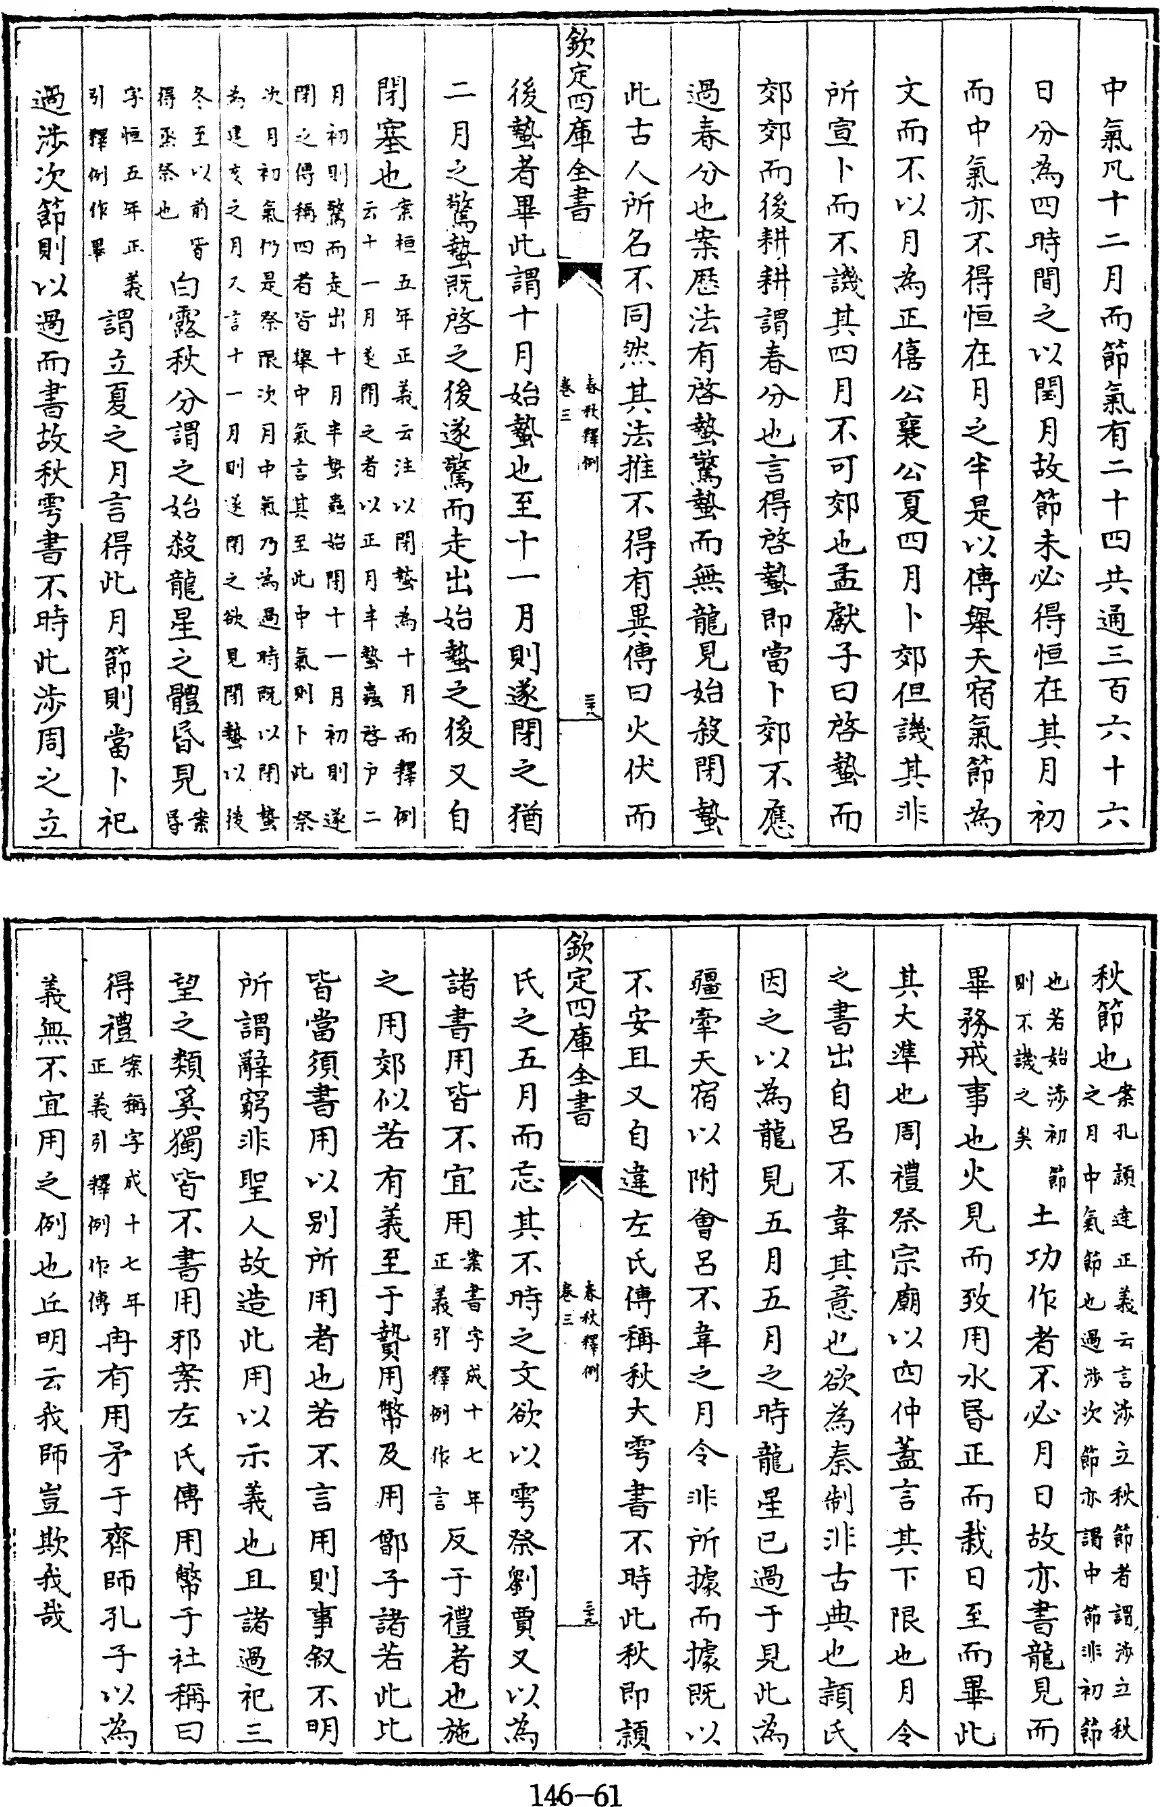 中氣凡十二月而節氣有二十四共通三百六十六
日分為四時間之以閏月故節未必得恒在其月初
而中氣亦不得恒在月之半是以傳舉天宿氣節為
文而不以月為正僖公襄公夏四月卜郊但譏其非
所宣卜而不譏其四月不可郊也孟獻子曰啓蟄而
郊郊而後耕耕謂春分也言得啓蟄即當卜郊不應
過春分也案歴法有啓蟄驚蟄而無龍見始殺閉蟄
此古人所名不同然其法推不得有異傳曰火伏而
欽定四庫全書
春秋釋例
卷三
三六
後蟄者畢此謂十月始蟄也至十一月則遂閉之猶
二月之驚蟄既啓之後遂驚而走出始蟄之後又自
閉塞也案桓五年正義云注以閉蟄為十月而釋例
云十一月遂閉之者以正月半蟄蟲啓户二
月初則驚而走出十月半蟄蟲始閉十一月初則遂
閉之傳稱四者皆舉中氣言其至此中氣則卜此祭
次月初氣仍是祭限次月中氣乃為過時既以閉蟄
為建亥之月又言十一月則遂閉之欲見閉蟄以後
冬至以前皆
得烝祭也
白露秋分謂之始殺龍星之體昏見案
昏
字恒五年正義
引釋例作畢
謂立夏之月言得此月節則當卜祀
過涉次節則以過而書故秋雩書不時此涉周之立
秋節也案孔穎達正義云言涉立秋節者謂涉立秋
之月中氣節也過涉次節亦謂中節非初節
也若始涉初節
則不譏之矣
土功作者不必月日故亦書龍見而
畢務戒事也火見而致用水昏正而栽日至而畢此
其大準也周禮祭宗廟以四仲蓋言其下限也月令
之書出自呂不韋其意也欲為秦制非古典也潁氏
因之以為龍見五月五月之時龍星已過于見此為
疆牽天宿以附會呂不韋之月令非所據而據既以
不安且又自違左氏傳稱秋大雩書不時此秋即潁
欽定四庫全書
春秋釋例
卷三
三九
氏之五月而忘其不時之文欲以雩祭劉賈又以為
諸書用皆不宜用案書字成十七年
正義引釋例作言
反于禮者也施
之用郊似若有義至于贄用幣及用鄫子諸若此比
皆當須書用以别所用者也若不言用則事叙不明
所謂辭窮非聖人故造此用以示義也且諸過祀三
望之類奚獨皆不書用邪案左氏傳用幣于社稱曰
得禮案稱字成十七年
正義引釋例作傳
冉有用矛于齊師孔子以為
義無不宜用之例也丘明云我師豈欺我哉
146-61